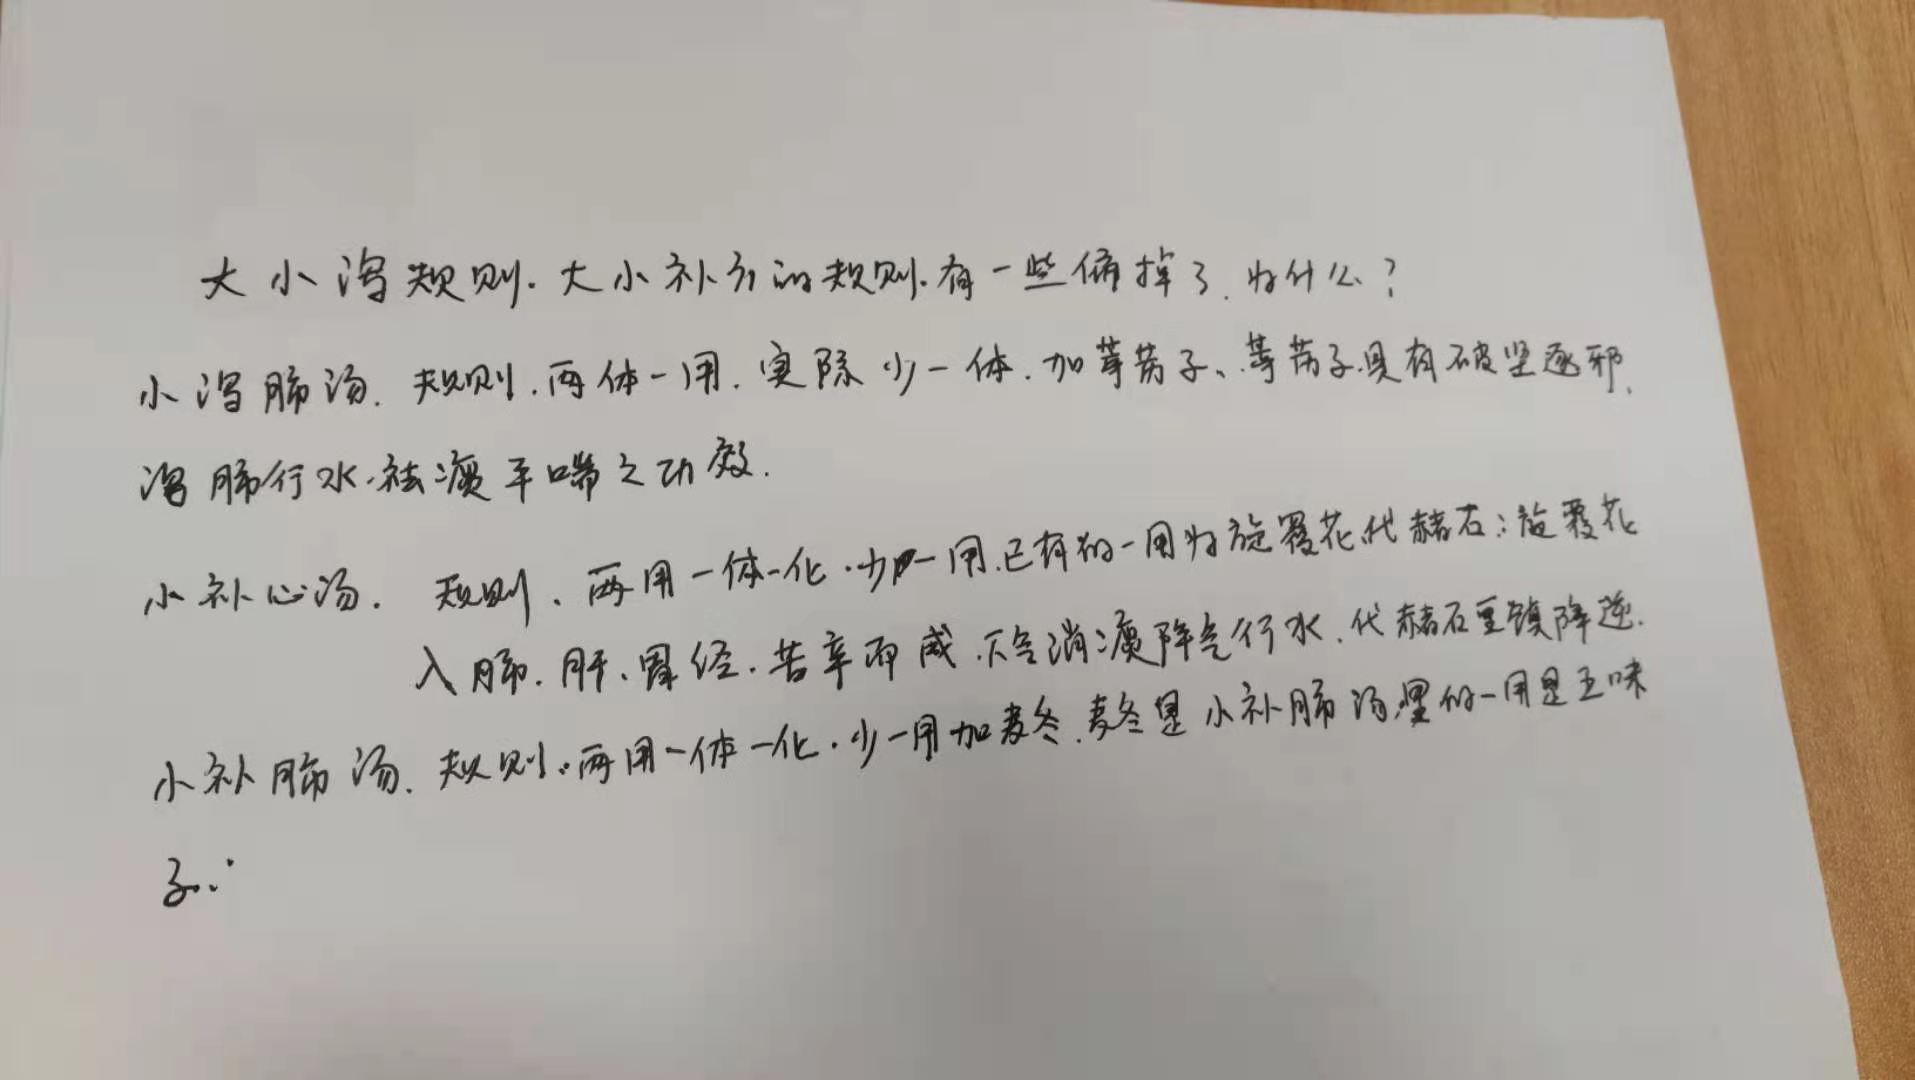 大小泻规则.大小补方的规则.有一些偏掉了.为什么?
小泻肺汤.规则.两体一用.实际少一体.加葶苈子、葶苈子具有破坚逐邪.
泻肺行水.祛痰平喘之功效.
小补心汤.规则、两用一体一化.少一用.已有的一用为旋覆花代赭石:旋覆花
入肺.肝、胃经.苦辛而咸.下气消痰降气行水.代赭石重镇降逆.
小补肺汤.规则.两用一体一化.少一用加麦冬.麦冬是小补肺汤里的一用是五味
子.